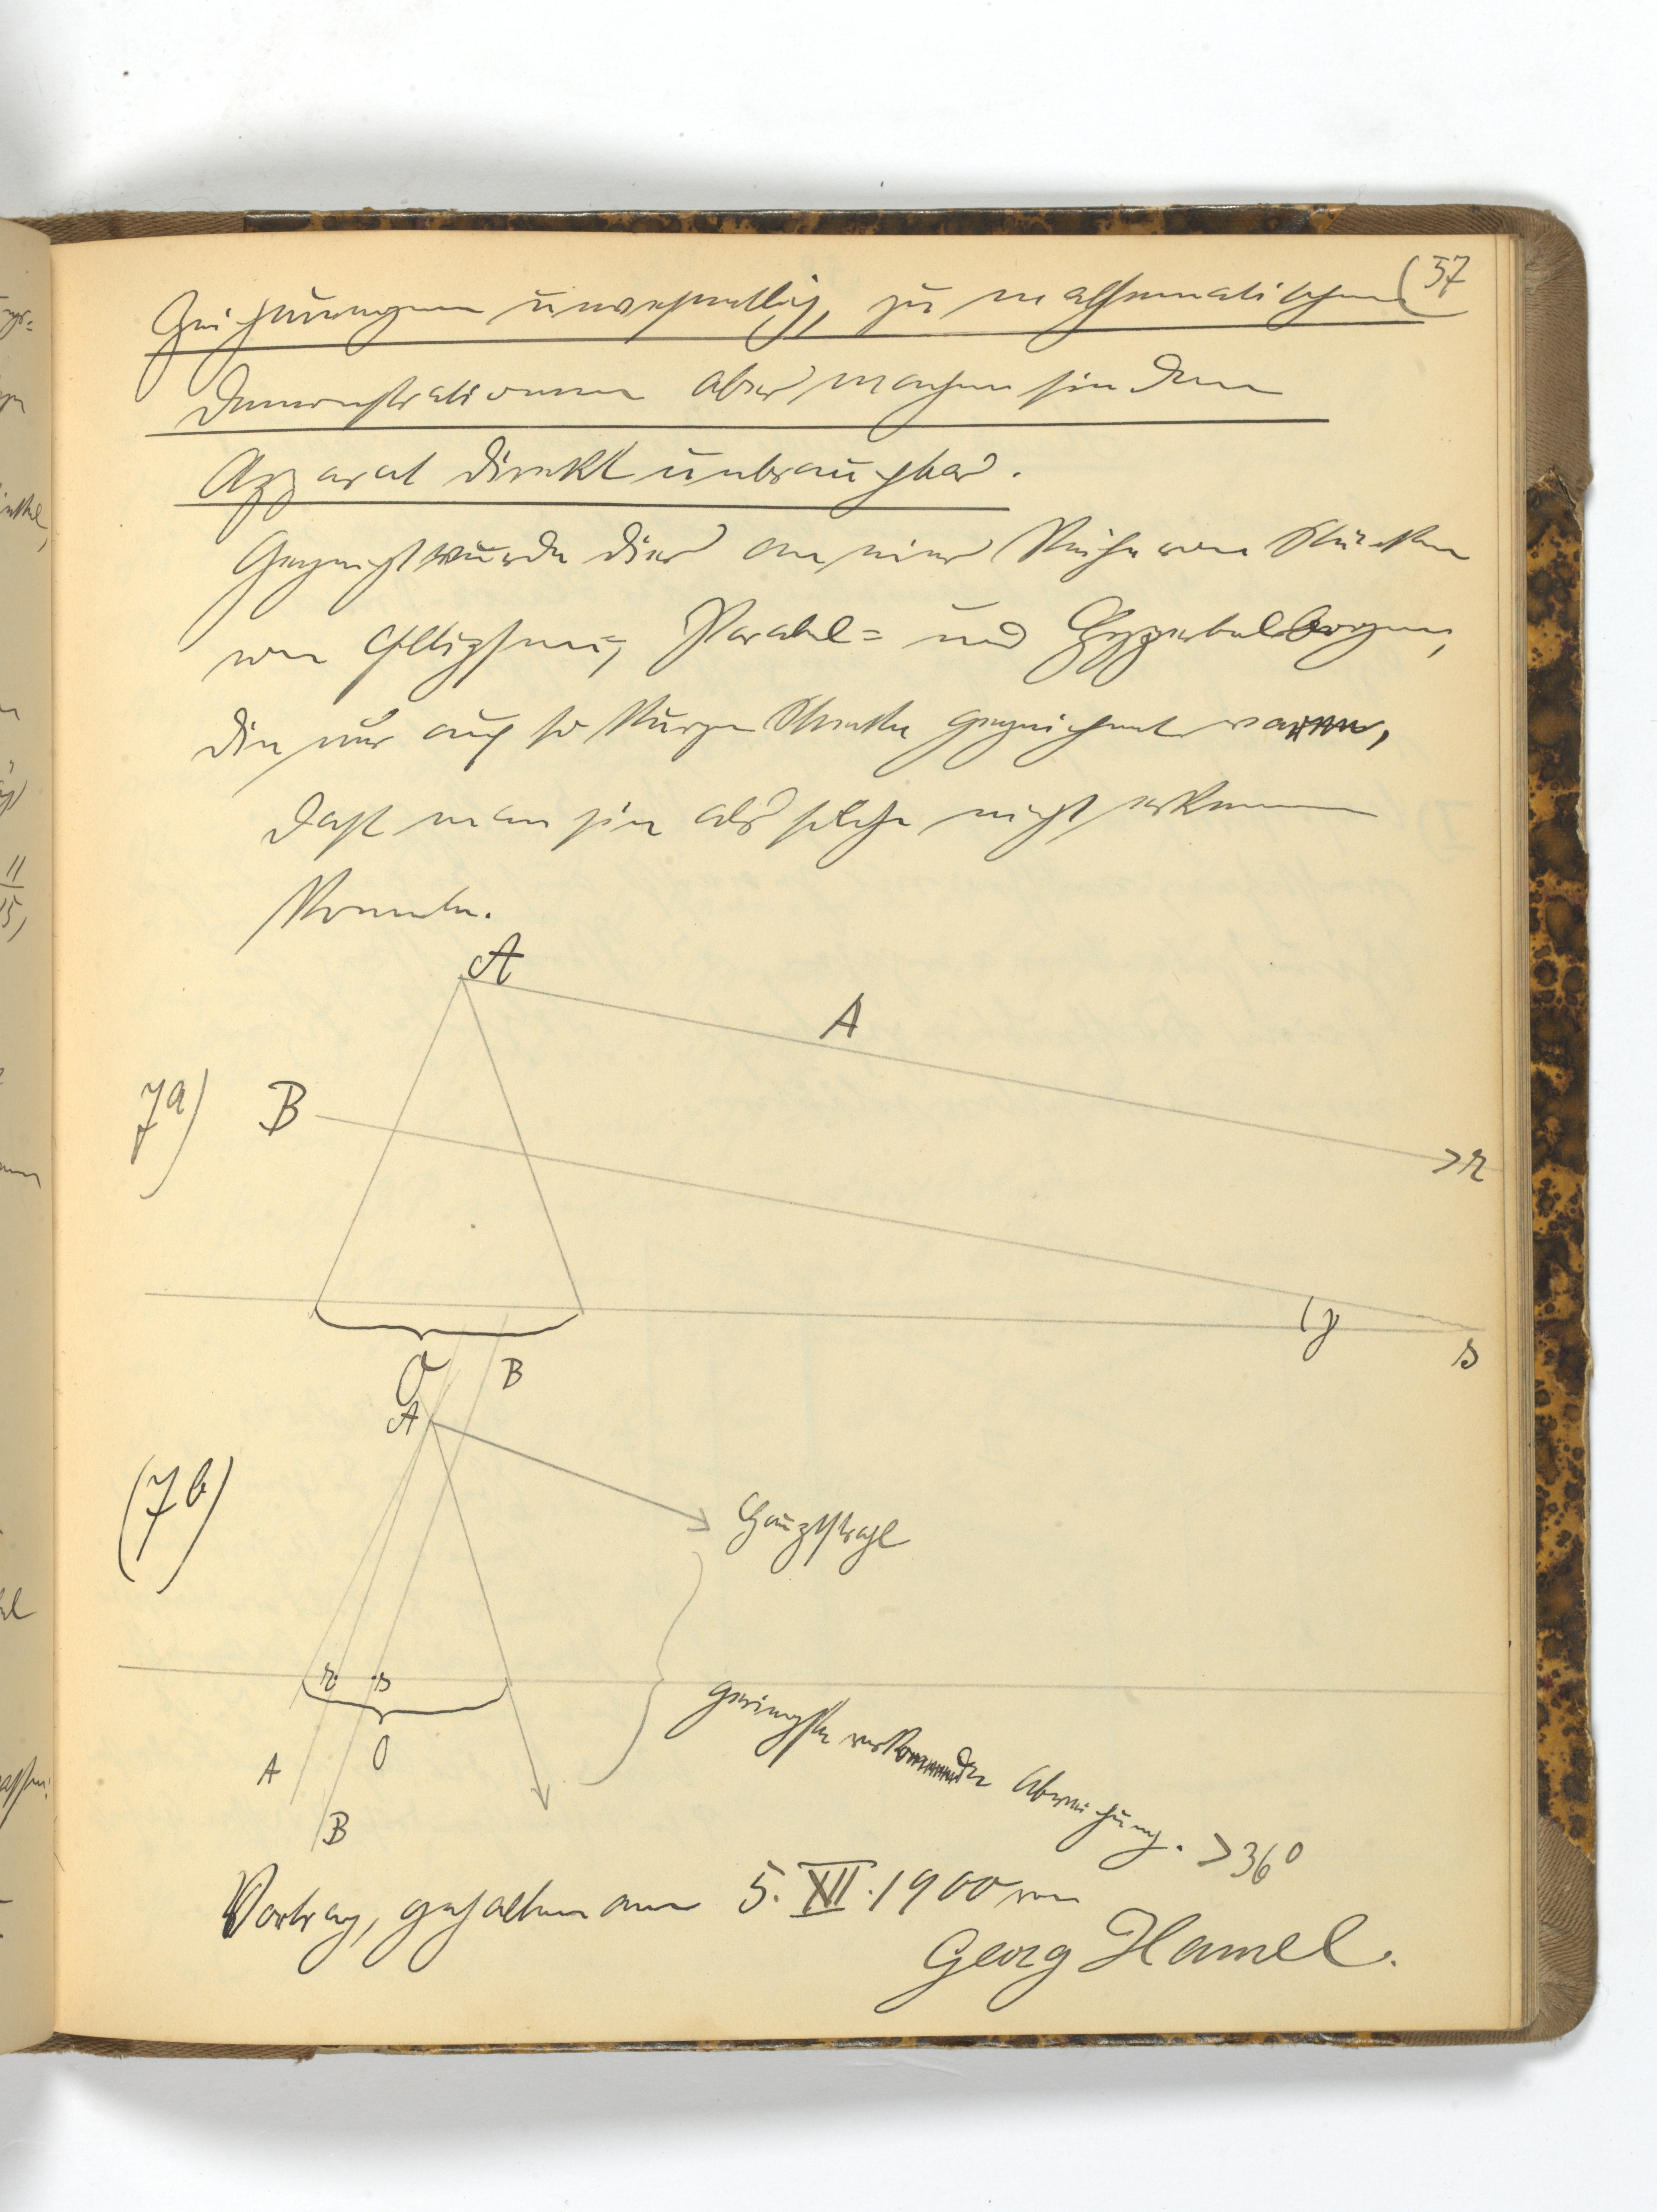 (57
Zeichnungen unwesentlich, zu mathematischen
Demonstrationen aber machen sie den
Apparat direkt unbrauchbar.
Gezeigt wurde dies an einer Reihe von Stücken
von Ellipsen, Parabel= und Hyperbelbogen,
die nur auf so kurze Strecke gezeichnet waren,
daß man sie als solche nicht erkennen
konnte.
A
A
7a)
B
r
γ
s
O
B
A
(7b)
Hauptstrahl
r s
geringste vorkommende Abweichung. >36°
O
A
B
Vortrag, gehalten am 5. XII. 1900 von
Georg Hamel.